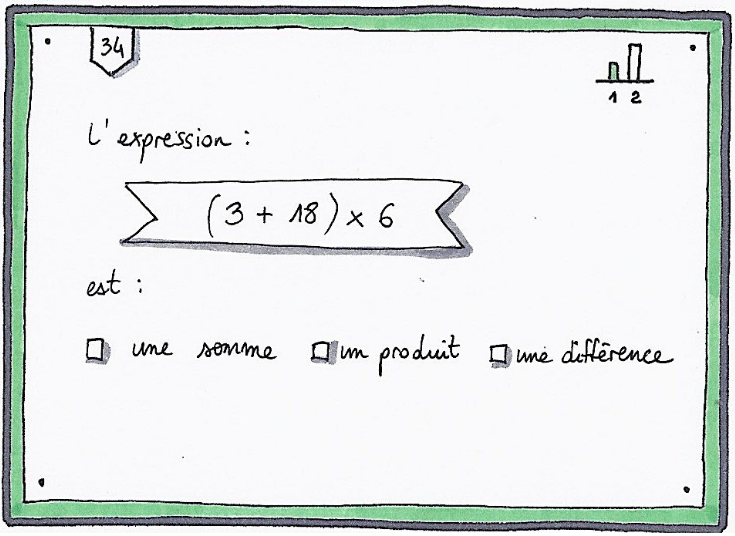 34
1 2
L'expression :
(3 + 18) × 6
est :
une somme un produit une différence